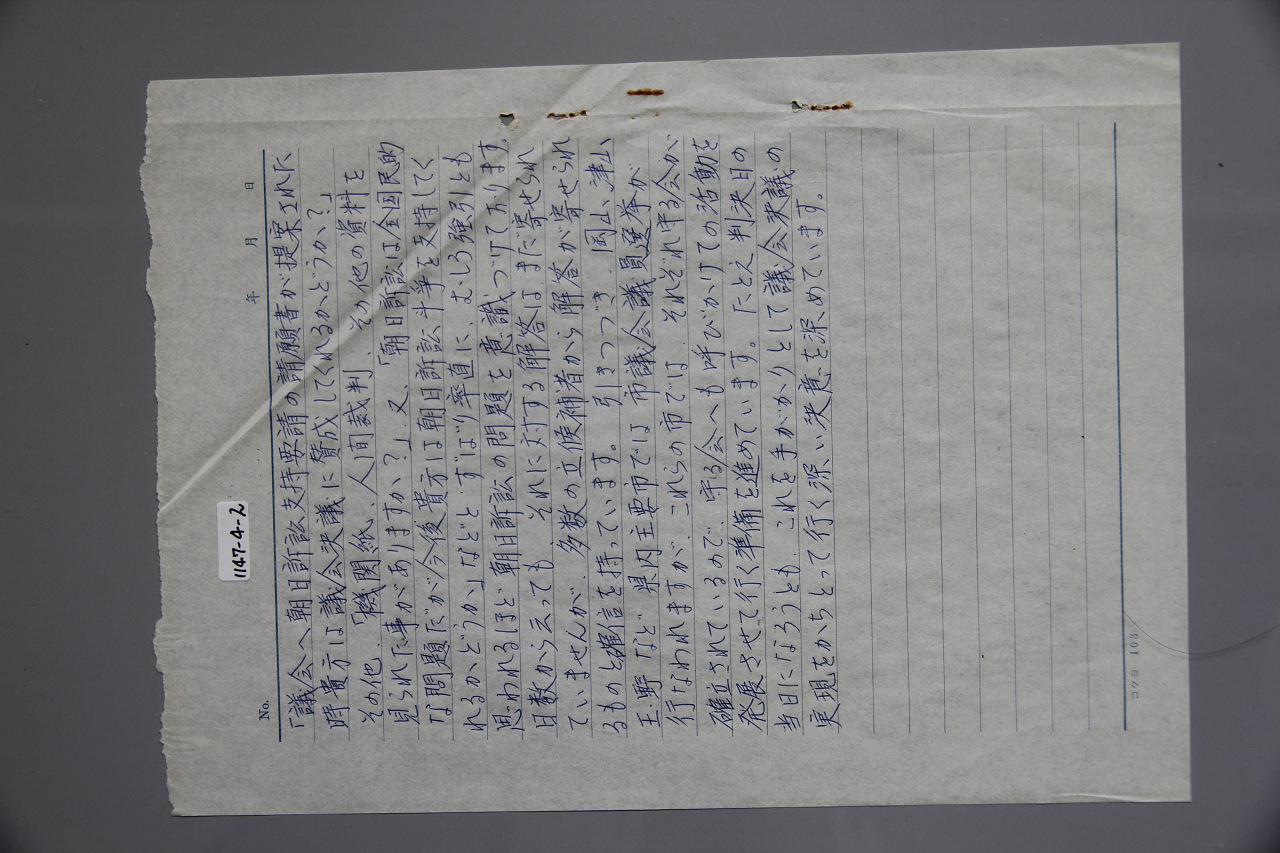 1147-4-2
No.
年 月 日
「議会へ朝日訴訟支持要請の請願書が提案された
時貴方は議会決議に賛成してくれるかどうか?」
その他、「機関紙、人間裁判、その他の資料を
見られた事がありますか?」又、「朝日訴訟は全国民的
な問題だが今後貴方は朝日訴訟斗争を支持してく
れるかどうか」などと ずばり率直に、むしろ強引とも
思われるほど朝日訴訟の問題を意識づけております。
日数から云っても それに対する解答はまだ寄せられ
ていませんが、多数の立候補者から解答が寄せられ
るものと確信を持っています。引きつづき 岡山、津山、
玉野など 県内主要市では 市議会議員選挙が
行なわれますが、これらの市では それぞれ守る会が
確立されているので、守る会へも呼びかけての活動を
発展させて行く準備を進めています。たとえ判決日の
当日になろうとも これを手がかりとして議会決議の
実現をかちとって行く深い決意を深めています。
コクヨ 108